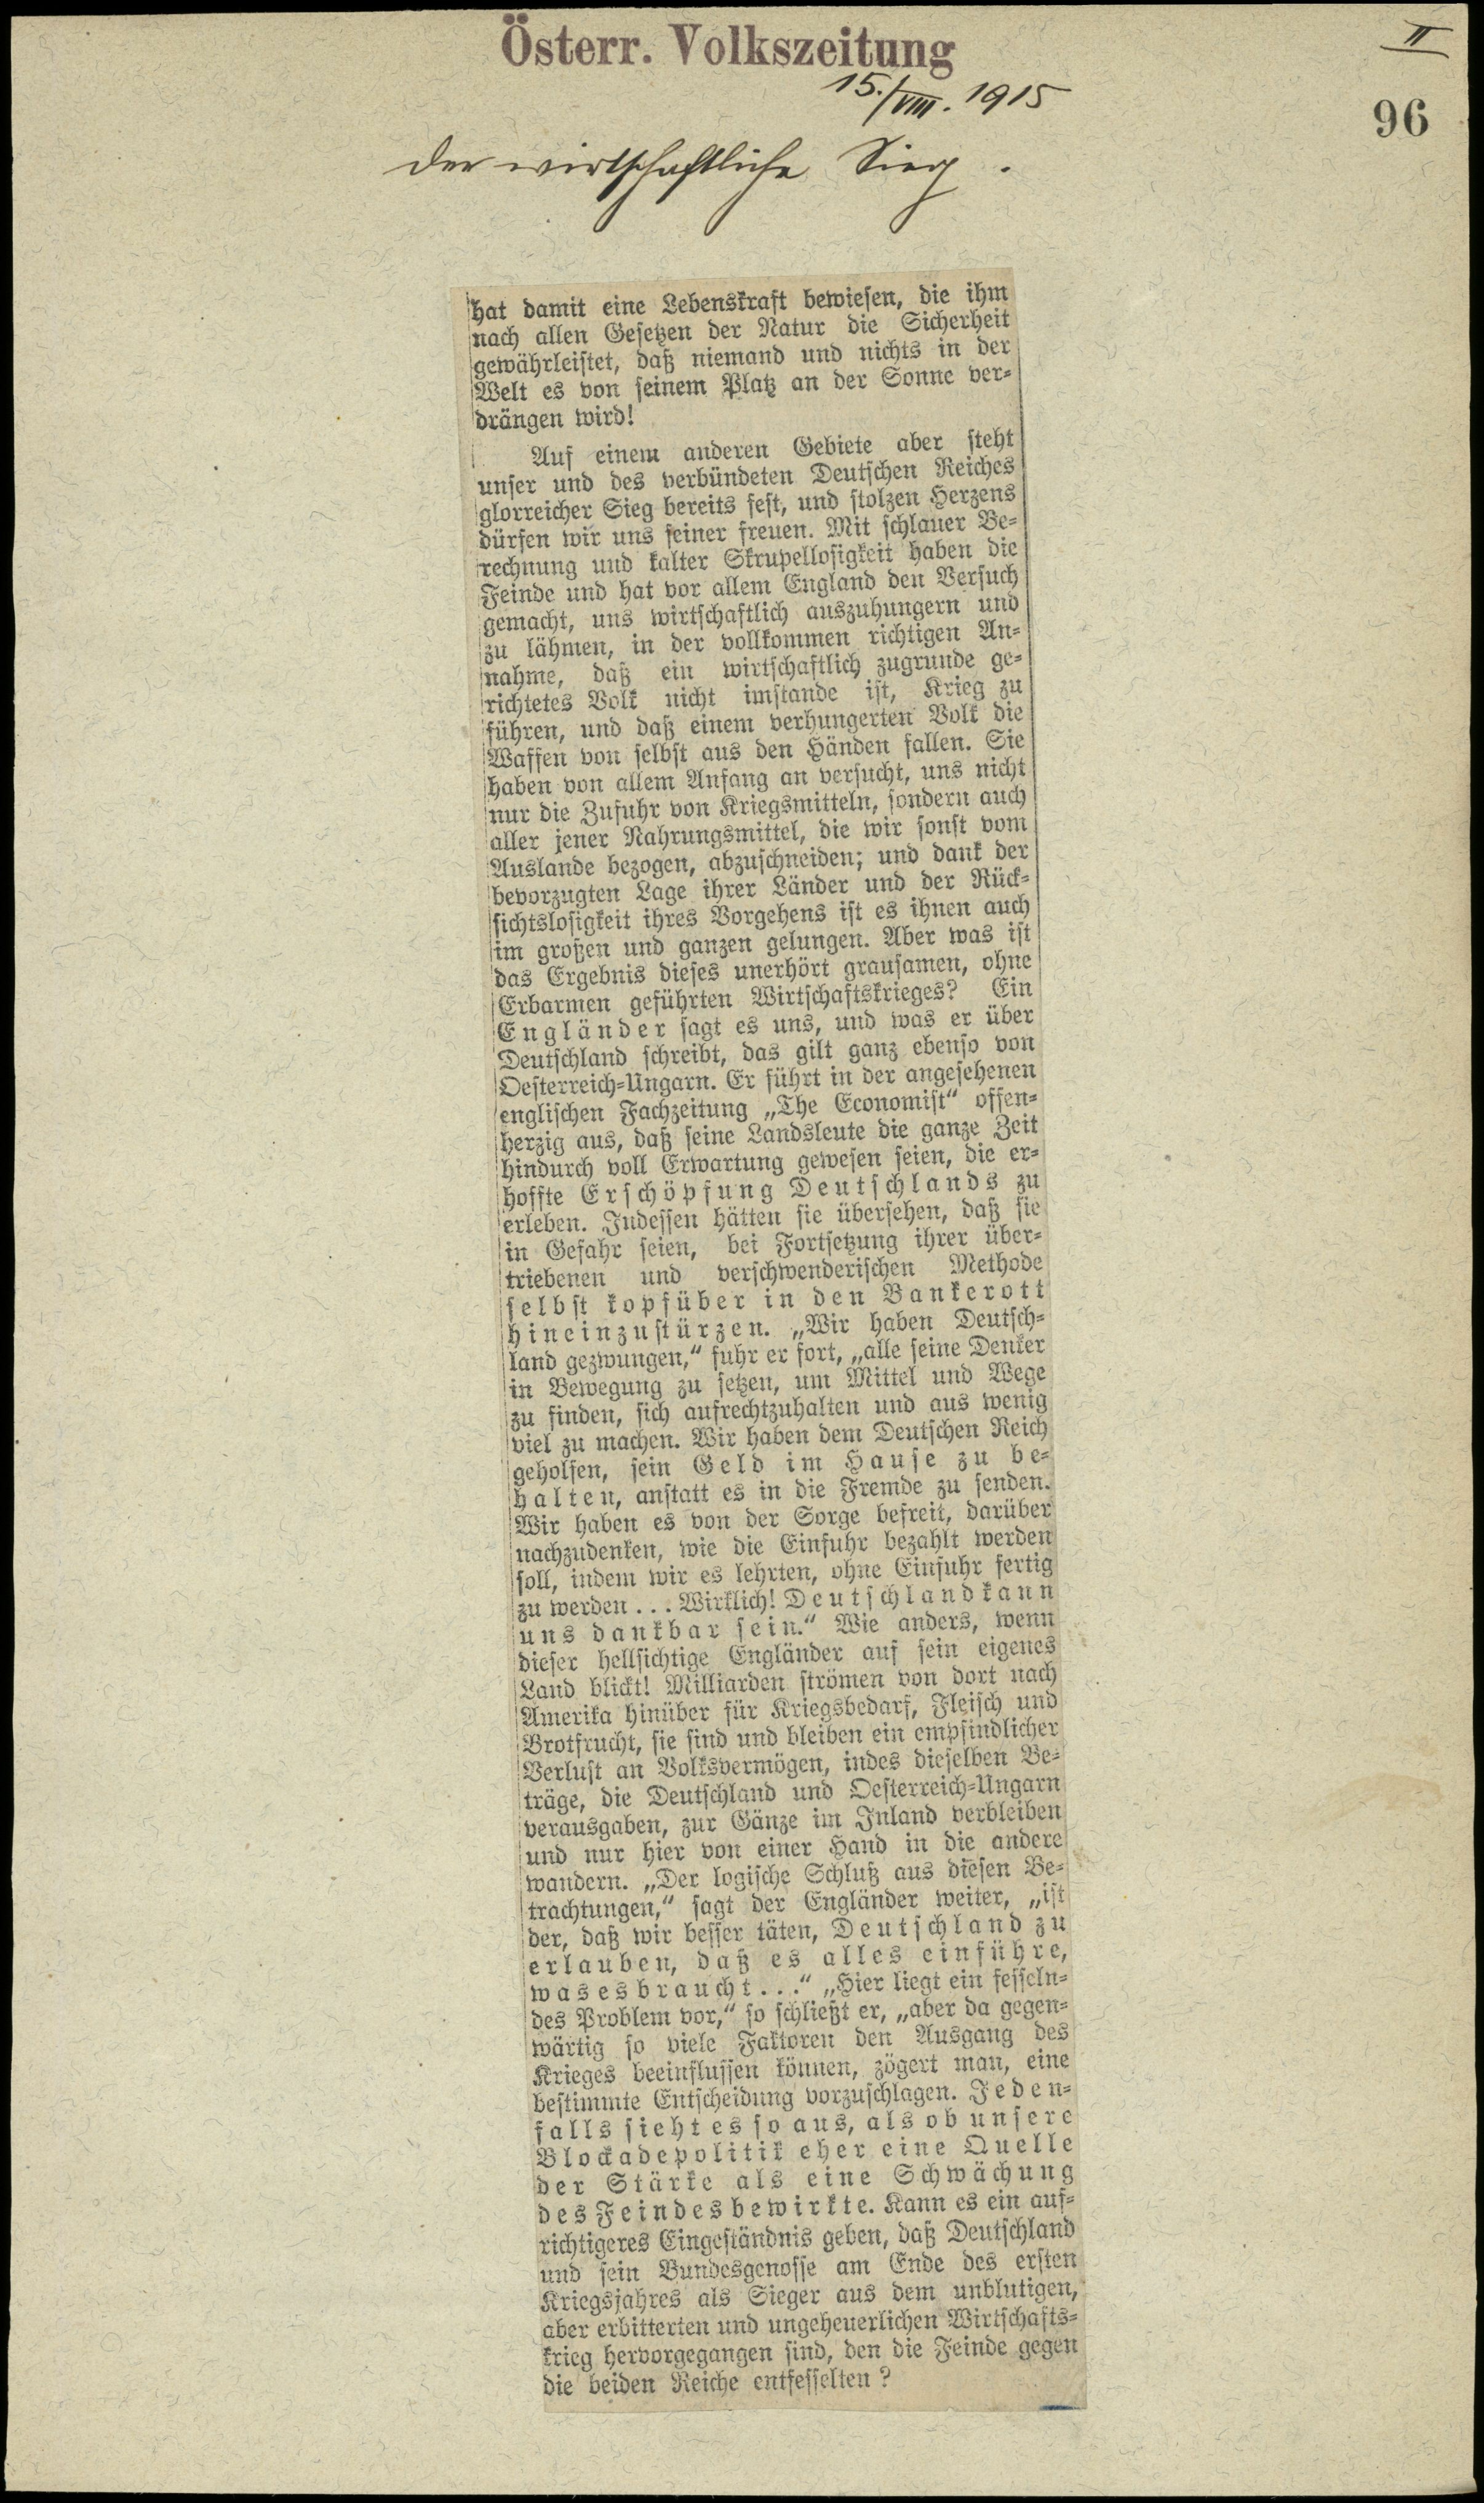 Österr. Volkszeitung
II
15./VIII. 1915
96
Der wirtschaftliche Sieg.
hat damit eine Lebenskraft bewiesen, die ihm
nach allen Gesetzen der Natur die Sicherheit
gewährleistet, daß niemand und nichts in der
Welt es von seinem Platz an der Sonne ver-
drängen wird!
Auf einem anderen Gebiete aber steht
unser und des verbündeten Deutschen Reiches
glorreicher Sieg bereits fest, und stolzen Herzens
dürfen wir uns seiner freuen. Mit schlauer Be-
rechnung und kalter Skrupellosigkeit haben die
Feinde und hat vor allem England den Versuch
gemacht, uns wirtschaftlich auszuhungern und
zu lähmen, in der vollkommen richtigen An-
nahme, daß ein wirtschaftlich zugrunde ge-
richtetes Volk nicht imstande ist, Krieg zu
führen, und daß einem verhungerten Volk die
Waffen von selbst aus den Händen fallen. Sie
haben von allem Anfang an versucht, uns nicht
nur die Zufuhr von Kriegsmitteln, sondern auch
aller jener Nahrungsmittel, die wir sonst vom
Auslande bezogen, abzuschneiden; und dank der
bevorzugten Lage ihrer Länder und der Rück-
sichtslosigkeit ihres Vorgehens ist es ihnen auch
im großen und ganzen gelungen. Aber was ist
das Ergebnis dieses unerhört grausamen, ohne
Erbarmen geführten Wirtschaftskrieges? Ein
Engländer sagt es uns, und was er über
Deutschland schreibt, das gilt ganz ebenso von
Oesterreich-Ungarn. Er führt in der angesehenen
englischen Fachzeitung „The Economist“ offen-
herzig aus, daß seine Landsleute die ganze Zeit
hindurch voll Erwartung gewesen seien, die er-
hoffte Erschöpfung Deutschlands zu
erleben. Indessen hätten sie übersehen, daß sie
in Gefahr seien, bei Fortsetzung ihrer über-
triebenen und verschwenderischen Methode
selbst kopfüber in den Bankerott
hineinzustürzen. „Wir haben Deutsch-
land gezwungen,“ fuhr er fort, „alle seine Denker
in Bewegung zu setzen, um Mittel und Wege
zu finden, sich aufrechtzuhalten und aus wenig
viel zu machen. Wir haben dem Deutschen Reich
geholfen, sein Geld im Hause zu be-
halten, anstatt es in die Fremde zu senden.
Wir haben es von der Sorge befreit, darüber
nachzudenken, wie die Einfuhr bezahlt werden
soll, indem wir es lehrten, ohne Einfuhr fertig
zu werden ... Wirklich! Deutschland kann
uns dankbar sein.“ Wie anders, wenn
dieser hellsichtige Engländer auf sein eigenes
Land blickt! Milliarden strömen von dort nach
Amerika hinüber für Kriegsbedarf, Fleisch und
Brotfrucht, sie sind und bleiben ein empfindlicher
Verlust an Volksvermögen, indes dieselben Be-
träge, die Deutschland und Oesterreich-Ungarn
verausgaben, zur Gänze im Inland verbleiben
und nur hier von einer Hand in die andere
wandern. „Der logische Schluß aus diesen Be-
trachtungen,“ sagt der Engländer weiter, „ist
der, daß wir besser täten, Deutschland zu
erlauben, daß es alles einführe,
was es braucht ...“ „Hier liegt ein fesseln-
des Problem vor,“ so schließt er, „aber da gegen-
wärtig so viele Faktoren den Ausgang des
Krieges beeinflussen können, zögert man, eine
bestimmte Entscheidung vorzuschlagen. Jeden-
falls sieht es so aus, als ob unsere
Blockadepolitik eher eine Quelle
der Stärke als eine Schwächung
des Feindes bewirkte. Kann es ein auf-
richtigeres Eingeständnis geben, daß Deutschland
und sein Bundesgenosse am Ende des ersten
Kriegsjahres als Sieger aus dem unblutigen,
aber erbitterten und ungeheuerlichen Wirtschafts-
krieg hervorgegangen sind, den die Feinde gegen
die beiden Reiche entfesselten?